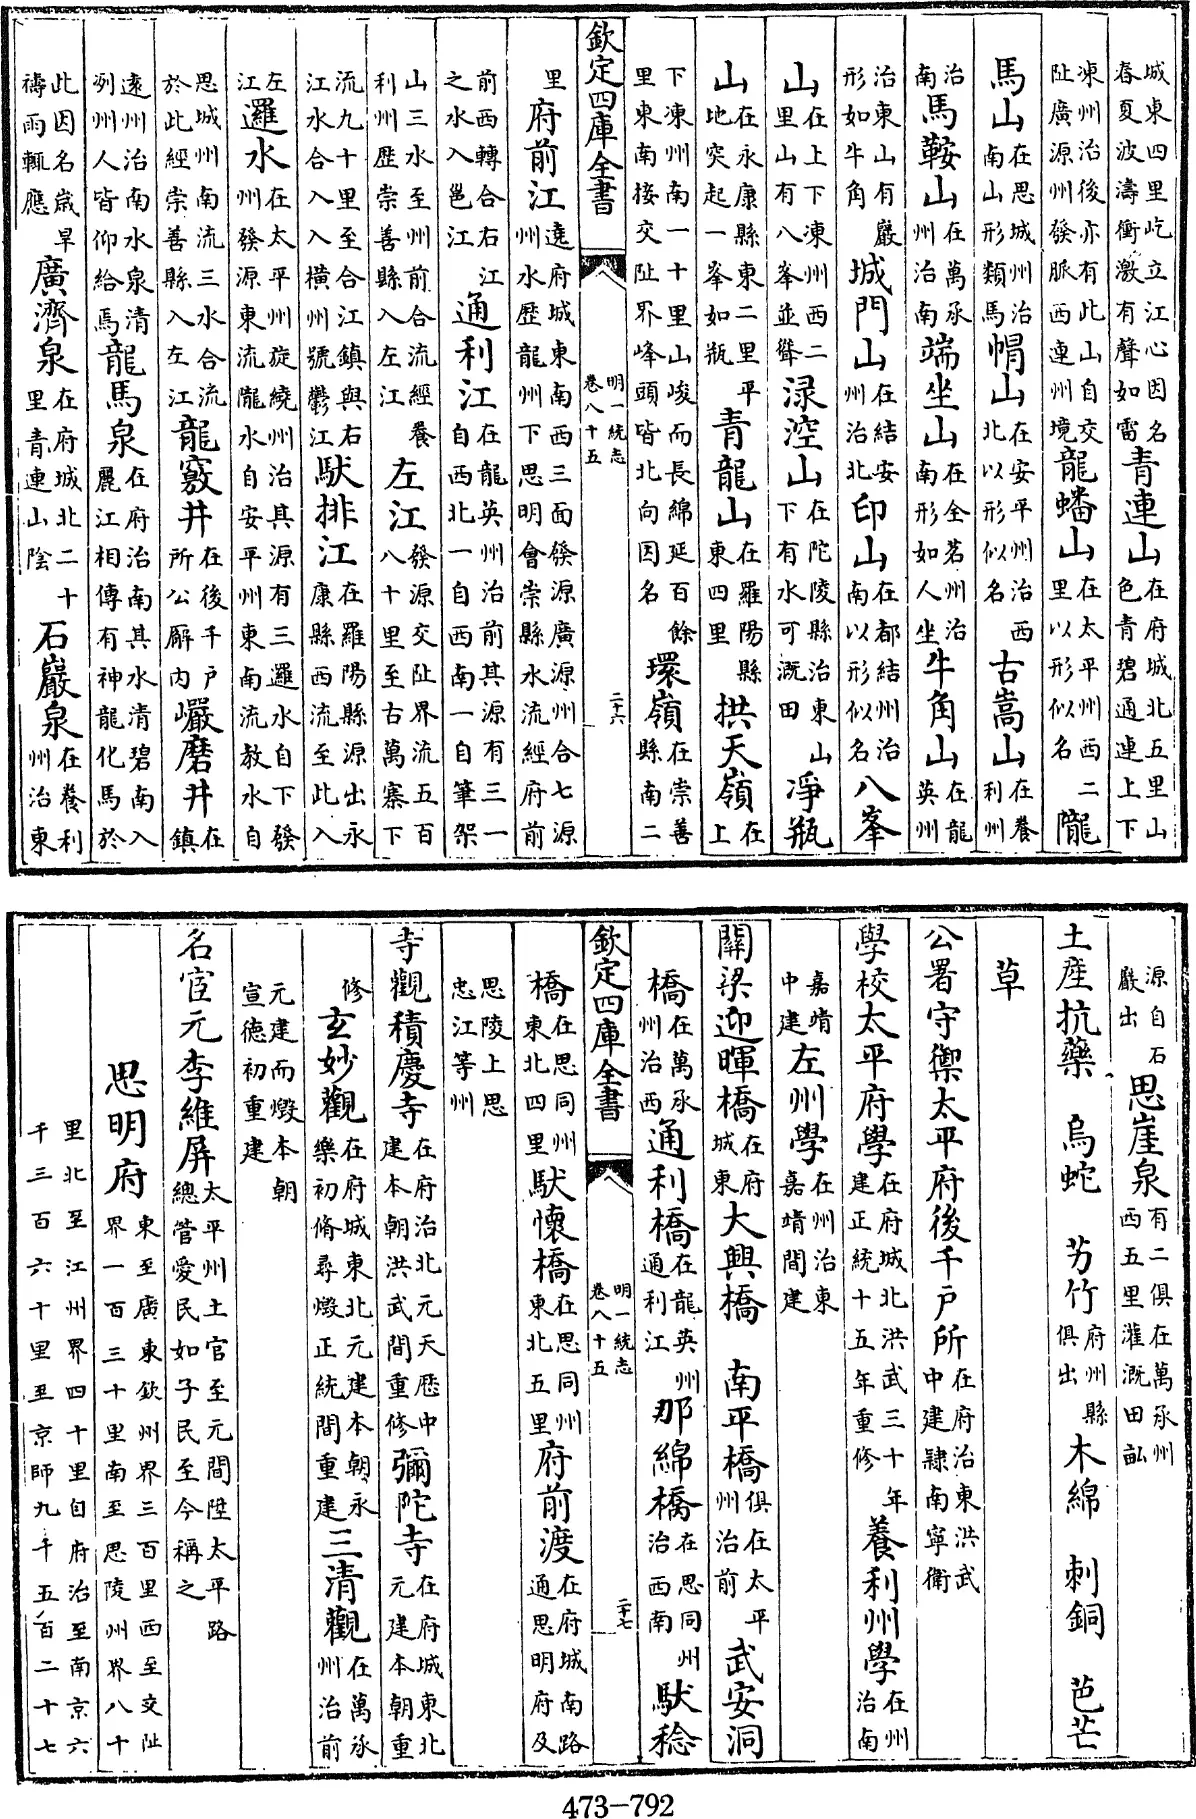 城東四里屹立江心因名春夏波濤衝激有聲如雷青連山在府城北五里山色青碧通連上下
凍州治後亦有此山自交趾廣源州發脈西連州境龍蟠山在太平州西二里以形似名隴
馬山在思城州治南山形類馬帽山在安平州治西北以形似名古嵩山在養利州
治南馬鞍山在萬承州治南端坐山在全茗州治南形如人坐牛角山在龍英州
治東山有巖形如牛角城門山在結安州治北印山在都結州治南以形似名八峯
山在上下凍州西二里山有八峯並聳淥涳山在陀陵縣治東山下有水可溉田淨瓶
山在永康縣東二里平地突起一峯如瓶青龍山在羅陽縣東四里拱天嶺在上
下凍州南一十里山峻而長綿延百餘里東南接交趾界峰頭皆北向因名環嶺在崇善縣南二
欽定四庫全書 明一統志卷八十五 二十六
里府前江遶府城東南西三面發源廣源州合七源州水歷龍州下思明會崇縣水流經府前
前西轉合右江之水入邕江通利江在龍英州治前其源有三一自西北一自西南一自筆架
山三水至州前合流經養利州歷崇善縣入左江左江發源交趾界流五百八十里至古萬寨下
流九十里至合江鎮與右江水合入入橫州號鬱江馱排江在羅陽縣源出永康縣西流至此入
左江邏水在太平州旋繞州治其源有三邏水自下發州發源東流隴水自安平州東南流教水自
思城州南流三水合流於此經崇善縣入左江龍竅井在後千戶所公廨內巗磨井在鎮
遠州治南水泉清冽州人皆仰給焉龍馬泉在府治南其水清碧南入麗江相傳有神龍化馬於
此因名歲旱禱雨輒應廣濟泉在府城北二十里青連山陰石巖泉在養利州治東
源自石巖出思崖泉有二俱在萬承州西五里灌溉田畝
土產抗藥 烏蛇 竻竹府州縣俱出木綿 刺銅 芭芒
草
公署守禦太平府後千戶所在府治東洪武中建隸南寧衛
學校太平府學在府城北洪武三十年建正統十五年重修養利州學在州治南
嘉靖中建左州學在州治東嘉靖間建
關梁迎暉橋在府城東大興橋 南平橋俱在太平州治前武安洞
橋在萬承州治西通利橋在龍英州通利江那綿橋在思同州治西南馱稔
欽定四庫全書 明一統志卷八十五 二十七
橋在思同州東北四里馱懷橋在思同州東北五里府前渡在府城南路通思明府及
思陵上思忠江等州
寺觀積慶寺在府治北元天歷中建本朝洪武間重修彌陀寺在府城東北元建本朝重
修玄妙觀在府城東北元建本朝永樂初脩尋燬正統間重建三清觀在萬承州治前
元建而燬本朝宣德初重建
名宦元李維屏太平州土官至元間陞太平路總管愛民如子民至今稱之
思明府東至廣東欽州界三百里西至交趾界一百三十里南至思陵州界八十
里北至江州界四十里自府治至南京六千三百六十里至京師九千五百二十七
473-792